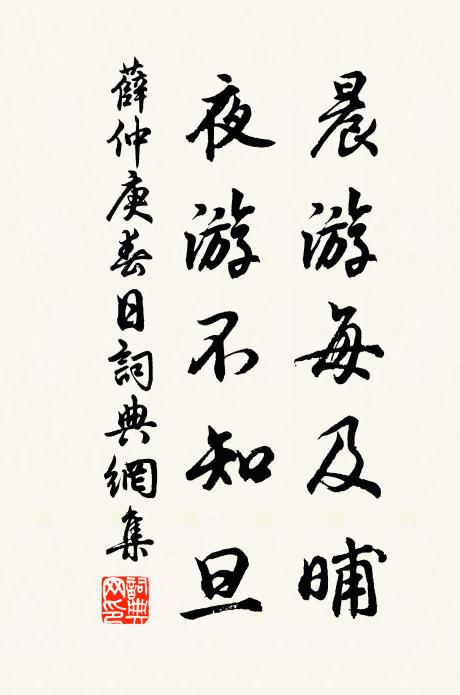 晨游每及晡
夜游不知旦
薛仲庚春日詞典網集
詞典網印